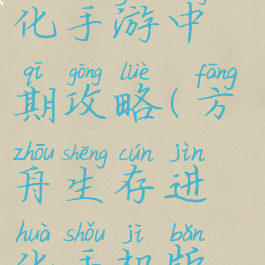 化手游中
qī gōng lüè fāng
期攻略(方
zhōu shēng cún jìn
舟生存进
huà shǒu jī bǎn
化手机版